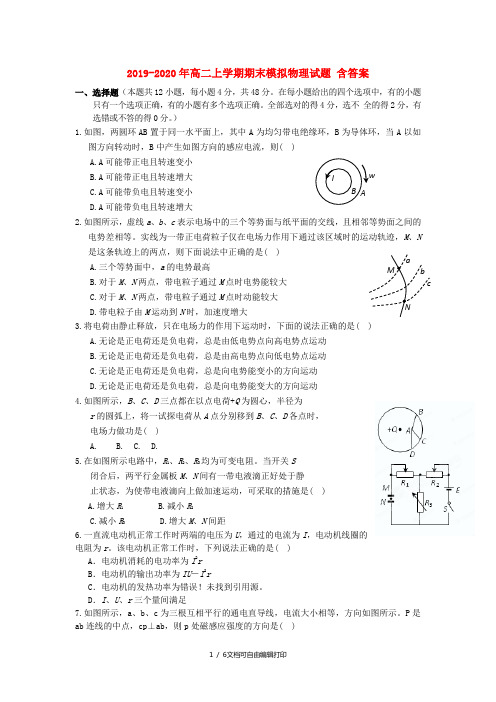 2019-2020年高二上学期期末模拟物理试题 含答案
一、选择题(本题共12小题，每小题4分，共48分。在每小题给出的四个选项中，有的小题
只有一个选项正确，有的小题有多个选项正确。全部选对的得4分，选不 全的得2分，有
选错或不答的得0分。)
1.如图，两圆环AB置于同一水平面上，其中A为均匀带电绝缘环，B为导体环，当A以如
图方向转动时，B中产生如图方向的感应电流，则( )
A.A可能带正电且转速变小
B.A可能带正电且转速增大
C.A可能带负电且转速变小
D.A可能带负电且转速增大
I
B
A
w
2.如图所示，虚线a、b、c表示电场中的三个等势面与纸平面的交线，且相邻等势面之间的
电势差相等。实线为一带正电荷粒子仅在电场力作用下通过该区域时的运动轨迹，M、N
是这条轨迹上的两点，则下面说法中正确的是( )
A.三个等势面中，a的电势最高
B.对于M、N两点，带电粒子通过M点时电势能较大
C.对于M、N两点，带电粒子通过M点时动能较大
D.带电粒子由M运动到N时，加速度增大
M
a
b
c
N
3.将电荷由静止释放，只在电场力的作用下运动时，下面的说法正确的是( )
A.无论是正电荷还是负电荷，总是由低电势点向高电势点运动
B.无论是正电荷还是负电荷，总是由高电势点向低电势点运动
C.无论是正电荷还是负电荷，总是向电势能变小的方向运动
D.无论是正电荷还是负电荷，总是向电势能变大的方向运动
4.如图所示，B、C、D三点都在以点电荷+Q为圆心，半径为
r的圆弧上，将一试探电荷从A点分别移到B、C、D各点时，
电场力做功是( )
A. B. C. D.
B
+Q
A
C
D
5.在如图所示电路中，R₁、R₂、R₃均为可变电阻。当开关S
闭合后，两平行金属板M、N间有一带电液滴正好处于静
止状态，为使带电液滴向上做加速运动，可采取的措施是( )
A.增大R₁ B.减小R₂
C.减小R₃ D.增大M、N间距
R₁
R₂
M
N
R₃
E
S
6.一直流电动机正常工作时两端的电压为U，通过的电流为I，电动机线圈的
电阻为r。该电动机正常工作时，下列说法正确的是( )
A．电动机消耗的电功率为I²r
B．电动机的输出功率为IU－I²r
C．电动机的发热功率为错误！未找到引用源。
D．I、U、r三个量间满足
7.如图所示，a、b、c为三根互相平行的通电直导线，电流大小相等，方向如图所示。P是
ab连线的中点，cp⊥ab，则p处磁感应强度的方向是( )
1 / 6文档可自由编辑打印